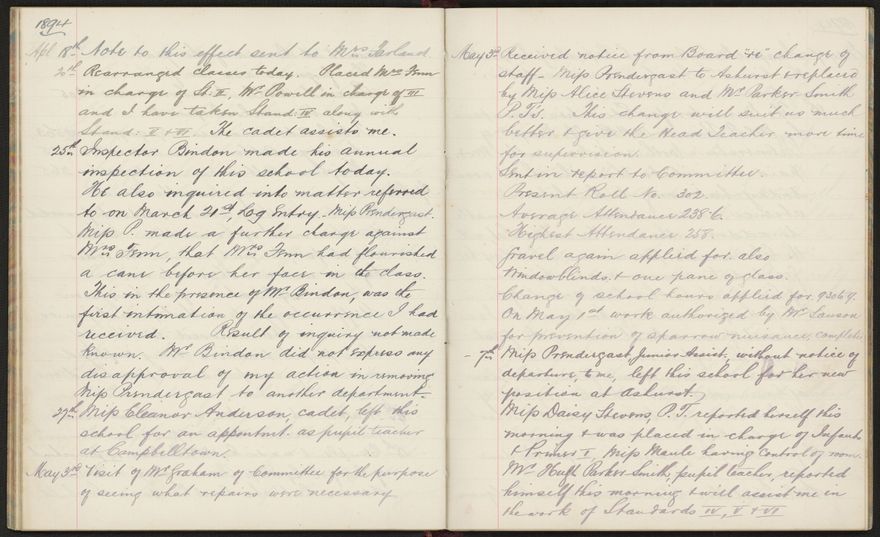 1894
Apl 18th Note to this effect sent to Mrs
20th Rearranged classes today. Placed Mrs Fenn
in charge of St: II, Mr Powell in charge of III
and I have taken Stand: IV along with
Stand: V & VI. The cadet assists me.
25th Inspector Bindon made his annual
inspection of this school today.
He also inquired into matter referred
to on March 21st, Log Entry. Miss Prendergast.
Miss P. made a further charge against
Mrs Fenn, that Mrs Fenn had flourished
a cane before her face in the class.
This in the presence of Mr Bindon, was the
first intimation of the occurrence I had
received. Result of inquiry not made
known. Mr Bindon did not express any
disapproval of my action in removing
Miss Prendergast to another department.
27th Miss Eleanor Anderson, cadet, left this
school for an appointmt. as pupil teacher
at Campbelltown.
May 3rd Visit of Mr Graham of Committee for the purpose
of seeing what repairs were necessary
May 3rd Received notice from Board "re" change of
staff - Miss Prendergast to Ashurst & replaced
by Miss Alice Stevens and Mr Parker Smith
P.T's. This change will suit us much
better & give the Head Teacher more time
for supervision.
Sent in report to Committee.
Present Roll No. 302.
Average Attendance 238.6.
Highest Attendance 258.
Gravel again applied for. also
Windowblinds. & one pane of glass.
Change of school hours applied for.
On May 1st work authorized by Mr Lawson
for prevention of sparrow nuisance, complete.
- 7th Miss Prendergast, Junior Assist, without notice of
departure, to me, left this school for her new
position at Ashurst.
Miss Daisy Stevens, P.T. reported herself this
morning & was placed in charge of Infants
& Primer I Miss Maule having control of room.
Mr Huff Parker Smith, pupil teacher, reported
himself this morning & will assist me in
the work of Standards IV, V & VI